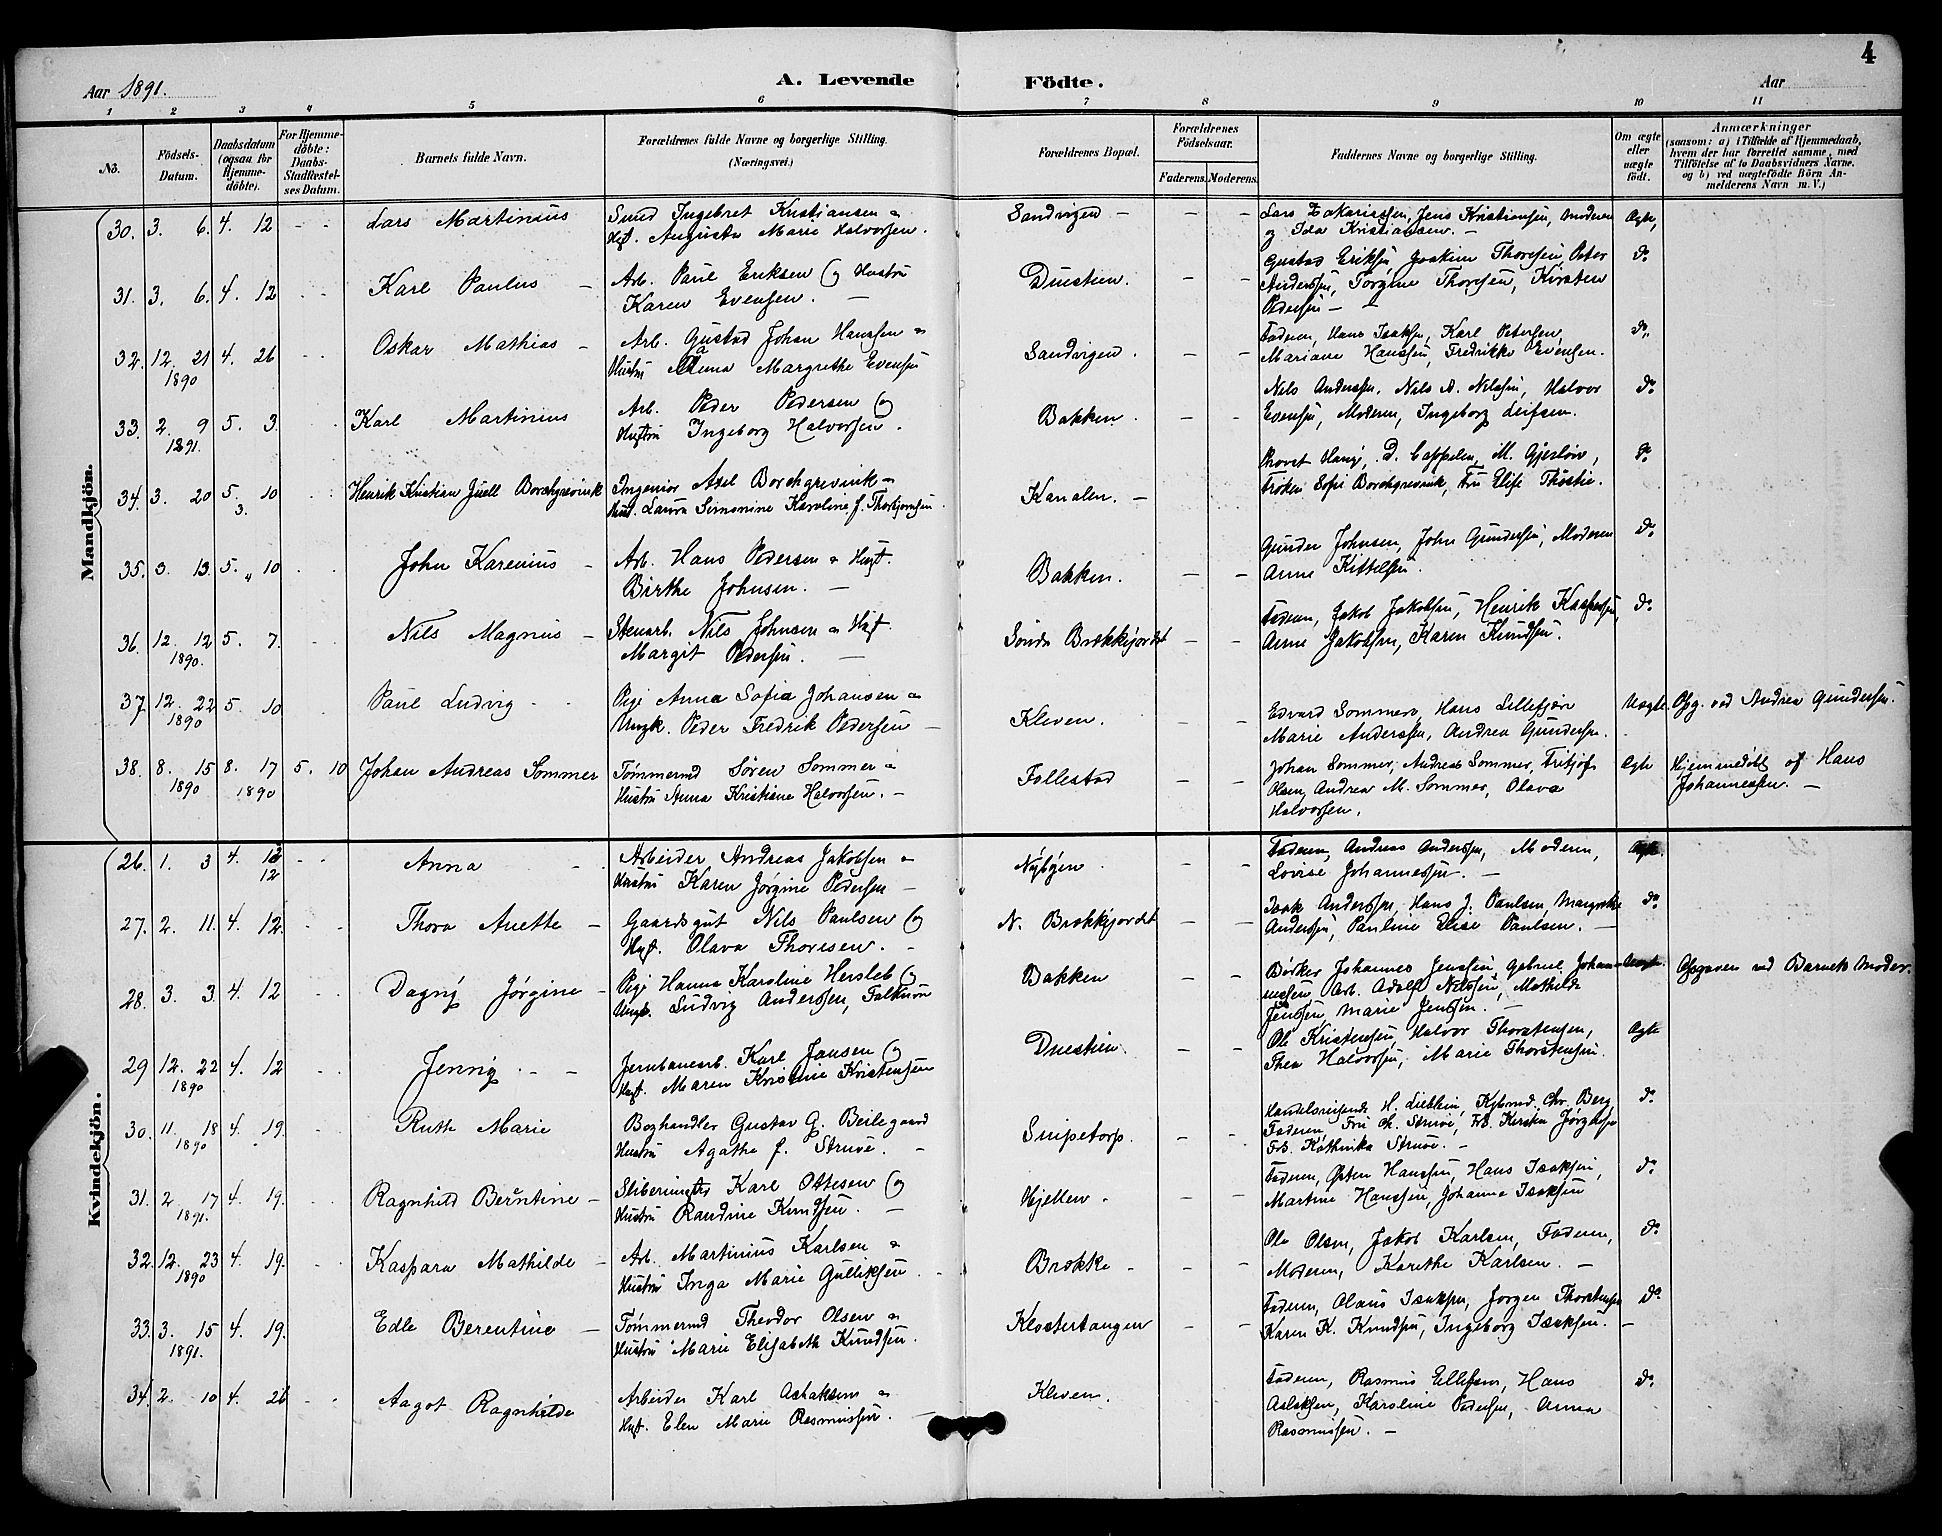 4
Aar 1891.
A. Levende Födte.
Aar
1 2 3 4 5 6 7 8 9 10 11
No.
Födsels-Datum.
Daabsdatum (ogsaa for Hjemme-döbte).
For Hjemme-döbte: Daabs-Stadfestel-ses Datum.
Barnets fulde Navn.
Forældrenes fulde Navne og borgerlige Stilling.
(Næringsvei.)
Forældrenes Bopæl.
Forældrenes Födselsaar.
Faderens. Moderens.
Faddernes Navne og borgerlige Stilling.
Om ægte eller uægte födt.
Anmærkninger
(saasom: a) i Tilfælde af Hjemmedaab, hvem der har forrettet samme, med Tilföielse af to Daabsvidners Navne, og b) ved uægtefödte Börn An-melderens Navn m. V.)
Mandkjön.
30. 3. 6. 4. 12 - - Lars Martinius
Ingebret Kristiansen &
Hust. Augusta Marie Halvorsen.
Sandvigen - - -
Lars Zakariassen, Jens Kristiansen, Moderen
og Ida Kristiansen. -
Ægte,
31. 3. 6. 4. 12 Karl Paulus -
Arb. Paul Eriksen og Hustru
Karen Evensen. -
Duestien. - -
Gustav Eriksen, Joakim Thorsen, Peter
Anderssen, Torgine Thorsen, Kirsten
Pedersen - -
do
32. 12. 21 4. 26 Oskar Mathias -
1890
Arb. Gustav Johan Hanssen &
Hustru Anna Margrethe Evensen
Sandvigen. - -
Faderen, Hans Isaksen, Karl Petersen,
Mariane Hanssen, Fredrikke Evensen.
do
33. 2. 9 5. 3. Karl Martinius
1891.
Arb. Peder Pedersen og
Hustru Ingeborg Halvorsen.
Bakken. - -
Nils Anderssen, Nils A. Nilsen, Halvor
Evensen, Moderen, Ingeborg Leifsen.
do
34. 3. 20 5. 10 Henrik Kristian Juell Borchgrevink
3.
Ingeniør Axel Borchgrevink &
Hust. Laura Simonine Karoline f. Thorbjørnsen.
Kanalen. -
Provst Hang, D. Cappelen, M. Gjersløv,
Frøken Sofi Borchgrevink, Fru Elise
do
35. 3. 13. 5. " 10 John Karenius -
Arb. Hans Pedersen & Hust.
Birthe Johnsen. -
Bakken. - -
Gunder Johnsen, John Gundersen, Moderen
Anne Kittelsen.
do
36. 12. 12 5. 7. Nils Magnus -
1890.
Stenarb. Nils Johnsen & Hust.
Margit Pedersen. -
Søndre Brækkejordet - -
Faderen, Jakob Jakobsen, Henrik Kaspersen,
Anne Jakobsen, Karen Knudsen.
do
37. 12. 22 5. 10 Paul Ludvig - -
1890
Pige Anna Sofia Johansen &
Ungk. Peder Fredrik Pedersen -
Kleven. - -
Edvard Sommer, Hans Lillefjær
Marie Anderssen, Andrea Gundersen.
Uægte. Opg. ved Andrea Gundersen.
38. 8. 15 8. 17 5. 10 Johan Andreas Sommer
1890 1890
Tømmermd Søren Sommer &
Hustru Anna Kristiane Halvorsen. -
Follestad - -
Johan Sommer, Andreas Sommer, Fritjof
Olsen, Andrea M. Sommer, Olava
Halvorsen.
Ægte Hjemmedøbt af Hans
Johannessen. -
Kvindekjön.
26. 1. 3 4. 12 - - Anna - -
12
Arbeider Andreas Jakobsen &
Hustru Karen Jørgine Pedersen -
Nybyen. - -
Faderen, Andreas Anderssen, Moderen,
Lovise Johannessen. -
Ægte.
27. 2. 11. 4. 12. Thora Anette -
Gaardsgut Nils Paulsen og
Hust. Olava Thoresen. -
N. Brækkejordet - -
Isak Anderssen, Hans J. Paulsen, Margrethe
Anderssen, Pauline Elise Paulsen. -
do
28. 3. 3. 4. 12 Dagny Jørgine -
Pige Hanna Karoline Hersleb og
Ungk. Ludvig Anderssen, Falkum
Bakken - -
Bødker Johannes Jenssen, Gabriel Johan-
nessen, Arb. Adolf Nilssen, Mathilde
Jenssen, Marie Jenssen. -
Uægte. Opgaven ved Barnets Moder.
29 12. 22 4. 12 Jenny. - -
1890
Jernbanearb. Karl Jansen og
Hust. Maren Kristine Kristensen
Duestien. - -
Ole Kristensen, Halvor Thorstensen,
Thea Halvorsen, Marie Thorstensen.
Ægte
30. 11. 18 4. 19. Ruth Marie
1890
Boghandler Gustav G. Beilegaard
Hustru Agathe f. Struve. -
Snipetorp. - -
Handelsreisende H. Lieblein, Kjbmd. Chr. Berg
Faderen, Fru Ch. Struve, Frk. Kirstin Jørgensen
Frk. Kathinka Struve. -
do
31. 2 17 4. 19. Ragnhild Berntine -
1891.
Karl Ottesen og
Hustru Randine Knudsen. -
Hjellen. - -
Faderen, Østen Hanssen, Hans Isaksen,
Martine Hanssen, Johanne Isaksen
do
32. 12. 23 4. 19. Kaspara Mathilde -
1890
Arb. Martinius Karlsen &
Hustru Inga Marie Gulliksen.
Brække - - -
Ole Olsen, Jakob Karlsen, Faderen,
Moderen, Karethe Karlsen. -
do
33. 3. 15 4. 19. Edle Berentine -
1891.
Tømmermd Theodor Olsen &
Hustru Marie Elisabeth Knudsen.
Klostertangen - -
Faderen, Olaus Isaksen, Jørgen Thorstensen
Karen K. Knudsen, Ingeborg Isaksen. -
do
34. 2. 10 4. 26 Aagot Ragnhilde
Arbeider Karl Aslaksen &
Hust. Elen Marie Rasmussen. -
Kleven.
Faderen, Rasmus Ellefsen, Hans
Aslaksen, Karoline Pedersen, Anna
Rasmussen. -
do